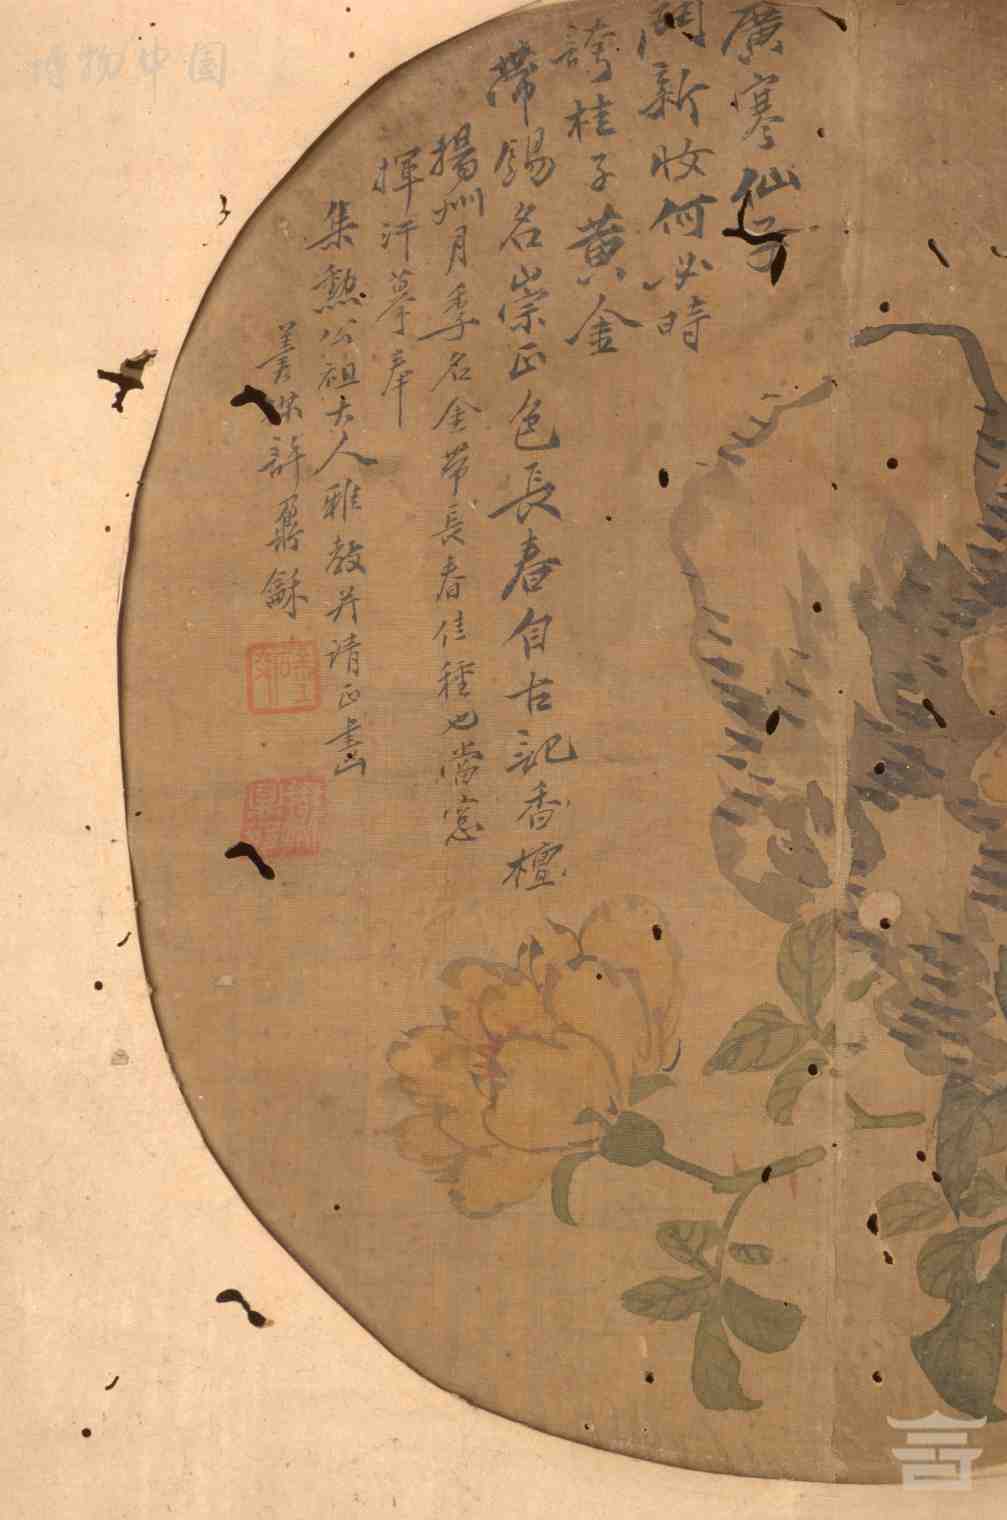 廣寒仙子
開新妝何必時
誇桂子黃金
帶錫名崇正色長春自古記香檀
揚州月季名金帶長春佳種也當窓
揮汗摹奉
集勲公祖大人雅教并請正畫
許鼐龢
博物中国